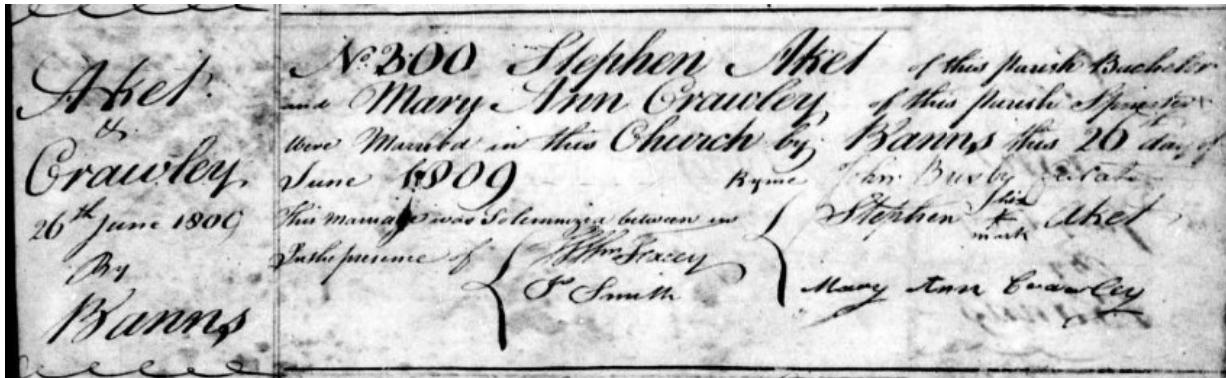 Aket
&
Crawley
26th June 1809
By
Banns
No. 300 Stephen Aket of this Parish Bachelor
and Mary Ann Crawley of this Parish Spinster
were Married in this Church by Banns this 26th day of
June 1809 By me John Busby Curate
This Marriage was Solemnized between us Stephen his X mark Aket
In the presence of Wm Stacey
Js Smith Mary Ann Crawley